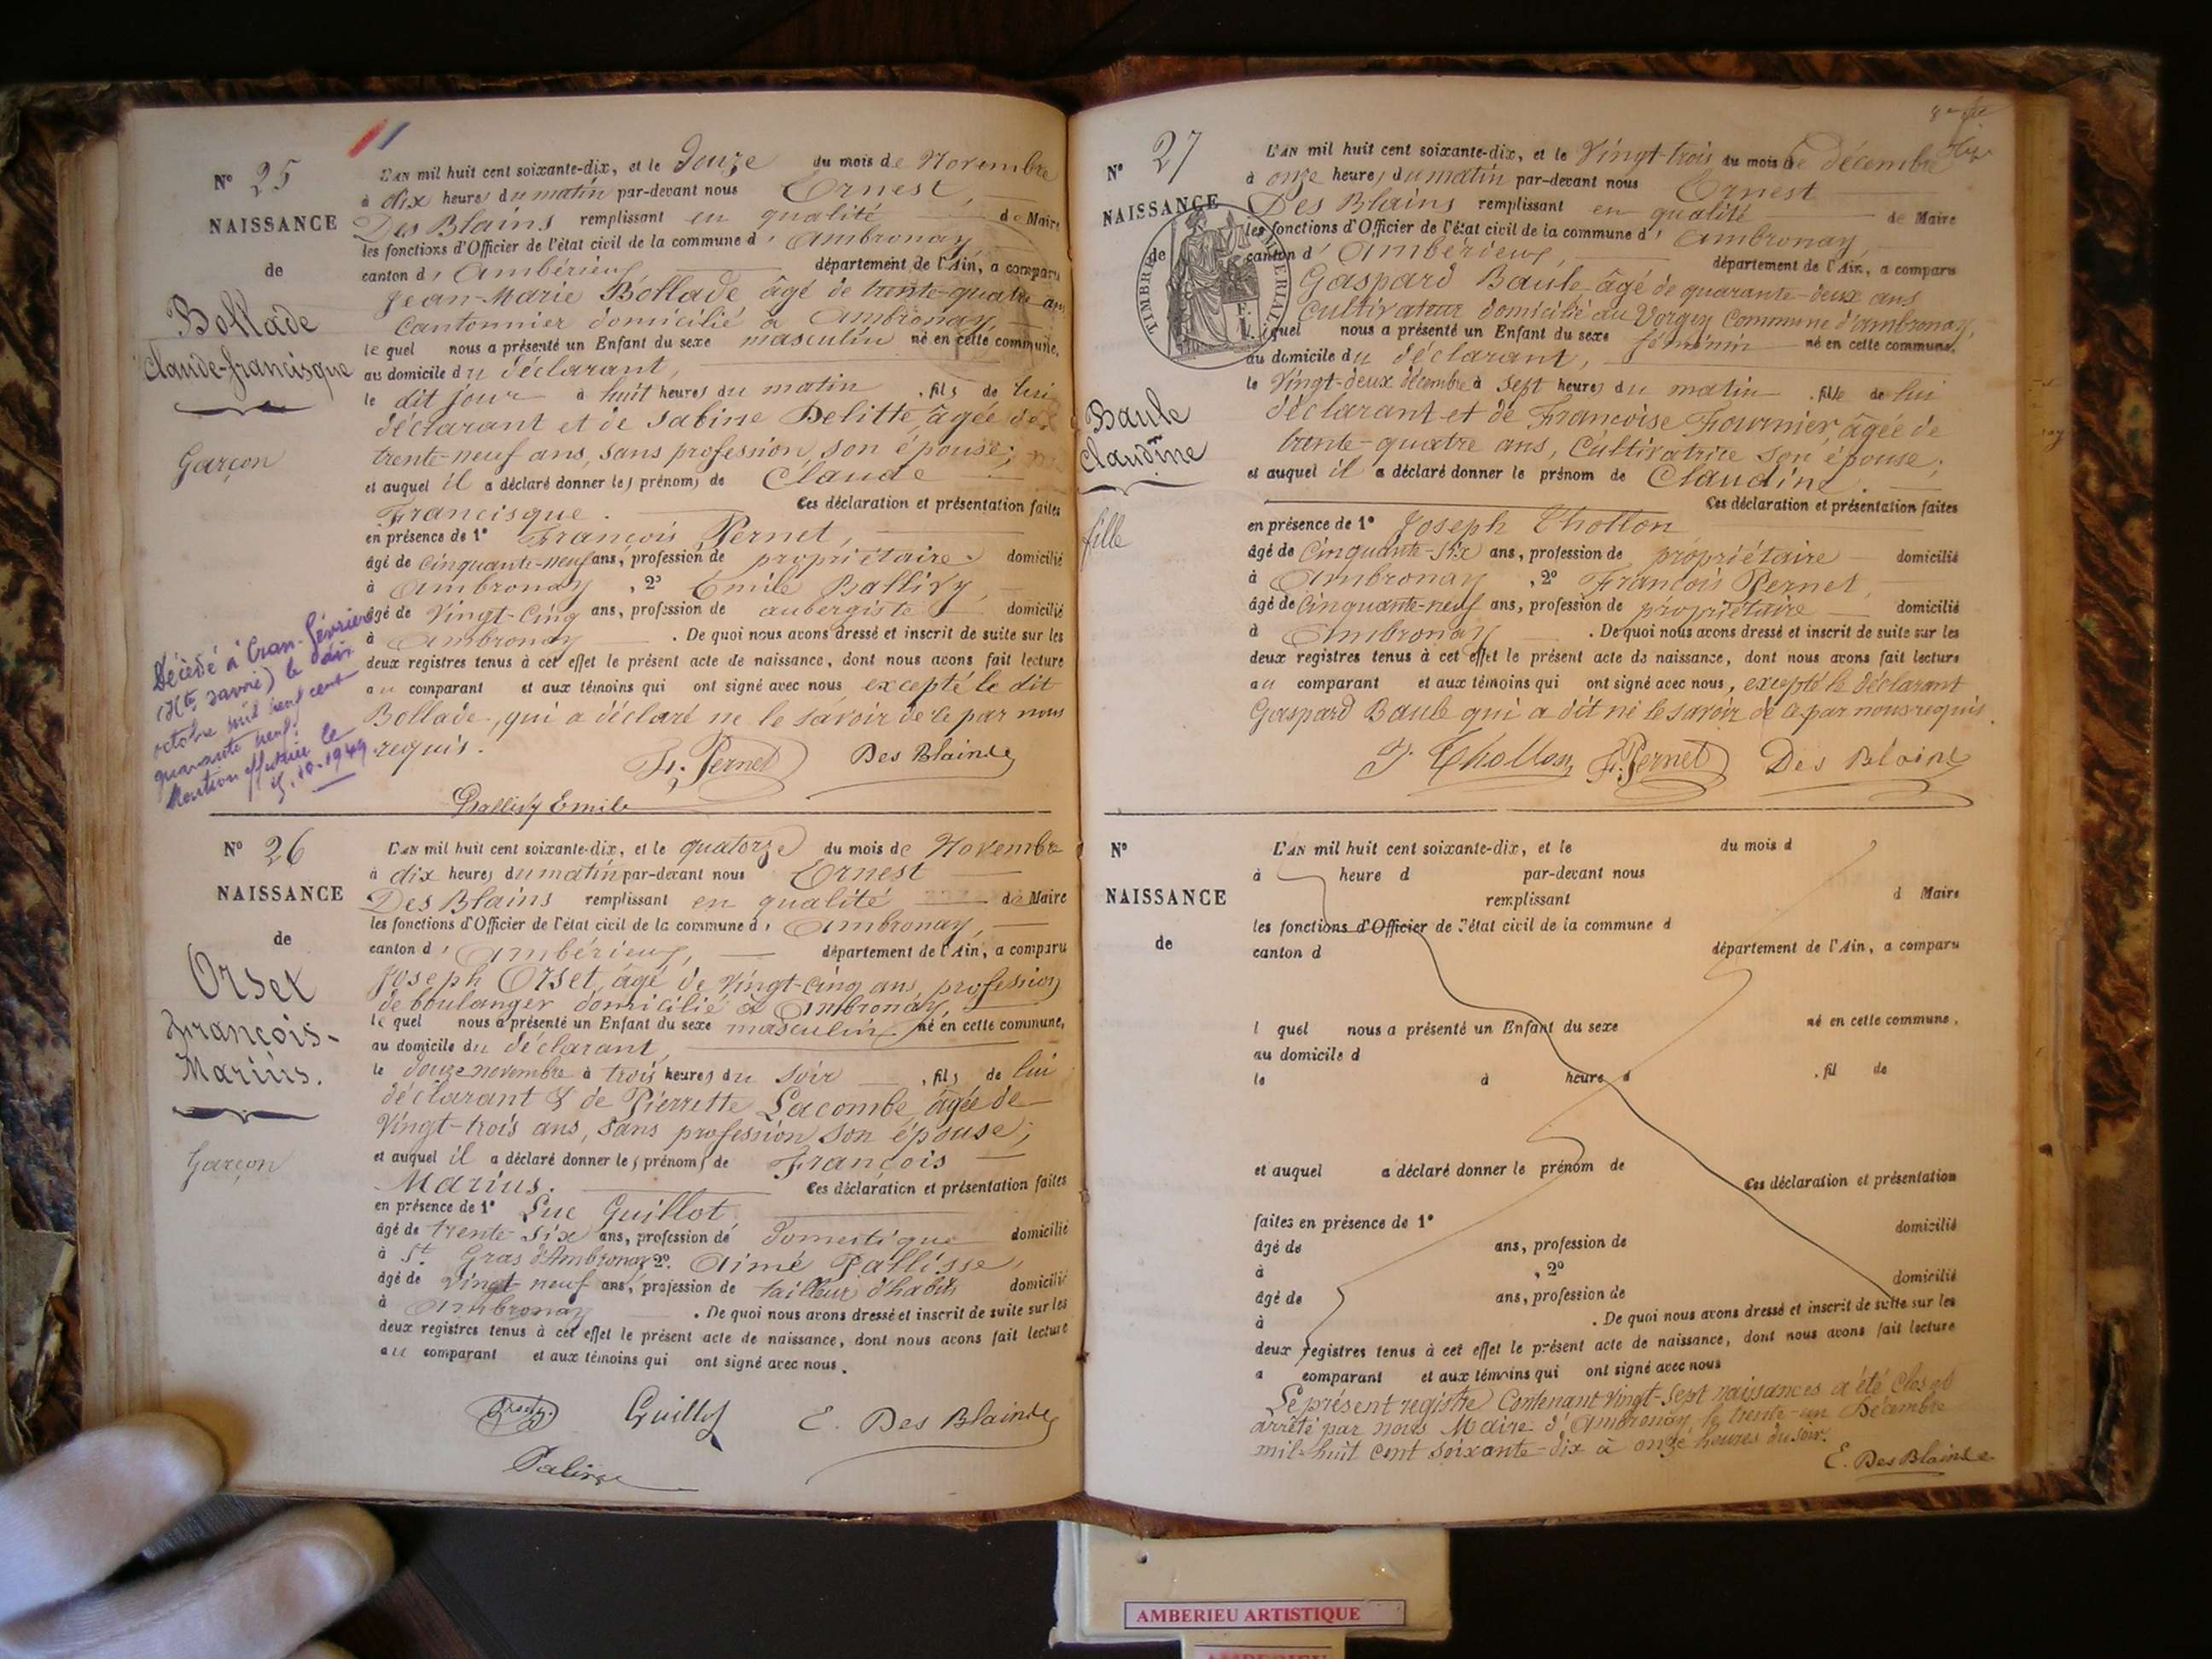 Nº 25
NAISSANCE
de
Bollade
Claude-francisque
Garçon
Décédé à Cran-Gévrier
(Hte Savoie) le
octobre mil neuf cent
quarante neuf.
Mention effectuée le
10.1949
L'AN mil huit cent soixante-dix, et le Douze du mois de Novembre
à dix heures du matin par-devant nous Ernest,
Des Blains remplissant en qualité de Maire
les fonctions d'Officier de l'état civil de la commune d'Ambronay,
canton d'Ambérieux, département de l'Ain, a comparu
Jean-Marie Bollade âgé de trente-quatre ans
Cantonnier domicilié à Ambronay,
lequel nous a présenté un Enfant du sexe masculin né en cette commune,
au domicile du déclarant,
le dit jour à huit heures du matin, fils de lui
déclarant et de Sabine Delitte, âgée de
trente-neuf ans, sans profession, son épouse;
et auquel il a déclaré donner les prénoms de Claude
Francisque. Ces déclaration et présentation faites
en présence de 1º François Pernet,
âgé de cinquante-neuf ans, profession de propriétaire domicilié
à Ambronay, 2º Emile Ballivy,
âgé de Vingt-Cinq ans, profession de aubergiste domicilié
à Ambronay. De quoi nous avons dressé et inscrit de suite sur les
deux registres tenus à cet effet le présent acte de naissance, dont nous avons fait lecture
au comparant et aux témoins qui ont signé avec nous, excepté le dit
Bollade, qui a déclaré ne le savoir de ce par nous
requis.
Fs. Pernet Des Blains
Ballivy Emile
Nº 26
NAISSANCE
de
Orset
François-
Marius.
Garçon
L'AN mil huit cent soixante-dix, et le quatorze du mois de Novembre
à dix heures du matin par-devant nous Ernest
Des Blains remplissant en qualité de Maire
les fonctions d'Officier de l'état civil de la commune d'Ambronay,
canton d'Ambérieux, département de l'Ain, a comparu
Joseph Orset, âgé de Vingt-cinq ans, profession
de boulanger domicilié à Ambronay,
lequel nous a présenté un Enfant du sexe masculin, né en cette commune,
au domicile du déclarant,
le douze novembre à trois heures du soir, fils de lui
déclarant & de Pierrette Lacombe, âgée de
Vingt-trois ans, sans profession son épouse;
et auquel il a déclaré donner les prénoms de François
Marius. Ces déclaration et présentation faites
en présence de 1º Luc Guillot
âgé de trente-six ans, profession de Domestique domicilié
à St. Gras d'Ambronay 2º. Aimé Pallisse,
âgé de Vingt neuf ans, profession de tailleur d'habits domicilié
à Ambronay. De quoi nous avons dressé et inscrit de suite sur les
deux registres tenus à cet effet le présent acte de naissance, dont nous avons fait lecture
au comparant et aux témoins qui ont signé avec nous.
Guillot E. Des Blains
Nº 27
NAISSANCE
de
TIMBRE IMPÉRIAL
Baule
Claudine
fille
L'AN mil huit cent soixante-dix, et le Vingt-trois du mois de décembre
à onze heures du matin par-devant nous Ernest
Des Blains remplissant en qualité de Maire
les fonctions d'Officier de l'état civil de la commune d'Ambronay,
canton d'Ambérieux, département de l'Ain, a comparu
Gaspard Baule âgé de quarante-deux ans
Cultivateur domicilié au Vorgey Commune d'ambronay,
lequel nous a présenté un Enfant du sexe féminin né en cette commune,
au domicile du déclarant,
le Vingt-deux décembre à sept heures du matin, fille de lui
déclarant et de Françoise Fournier, âgée de
trente-quatre ans, Cultivatrice son épouse;
et auquel il a déclaré donner le prénom de Claudine.
Ces déclaration et présentation faites
en présence de 1º Joseph Thollon
âgé de Cinquante-six ans, profession de propriétaire domicilié
à Ambronay, 2º François Pernet,
âgé de cinquante-neuf ans, profession de propriétaire domicilié
à Ambronay. De quoi nous avons dressé et inscrit de suite sur les
deux registres tenus à cet effet le présent acte de naissance, dont nous avons fait lecture
au comparant et aux témoins qui ont signé avec nous, excepté le déclarant
Gaspard Baule qui a dit ne le savoir de ce par nous requis.
J. Thollon Fs. Pernet Des Blains
Nº
NAISSANCE
de
L'AN mil huit cent soixante-dix, et le du mois d
à heure d par-devant nous
remplissant d Maire
les fonctions d'Officier de l'état civil de la commune d
canton d département de l'Ain, a comparu
l quel nous a présenté un Enfant du sexe né en cette commune,
au domicile d
le à heure d , fil de
et auquel a déclaré donner le prénom de
Ces déclaration et présentation
faites en présence de 1º domicilié
âgé de ans, profession de
à , 2º domicilié
âgé de ans, profession de
à . De quoi nous avons dressé et inscrit de suite sur les
deux registres tenus à cet effet le présent acte de naissance, dont nous avons fait lecture
a comparant et aux témoins qui ont signé avec nous
Le présent registre Contenant Vingt-Sept naissances a été clos et
arrêté par nous Maire d'Ambronay le trente-un Décembre
mil-huit cent soixante-dix à onze heures du soir.
E. Des Blains
AMBERIEU ARTISTIQUE
AMBERIEU